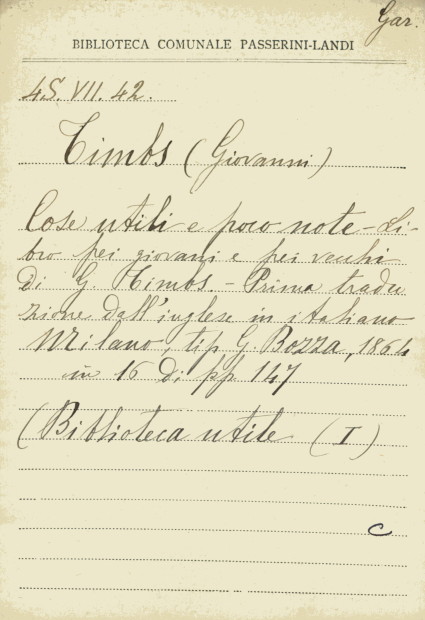 Gar.
BIBLIOTECA COMUNALE PASSERINI-LANDI
4S. VII. 42.
Timbs (Giovanni)
Cose utili e poco note - Li-
bro pei giovani e pei vecchi
di G Timbs. - Prima tradu
zione dall'inglese in italiano
Milano, tip G. Bozza, 1864
in 16 di pp 147
(Biblioteca utile (I)
C